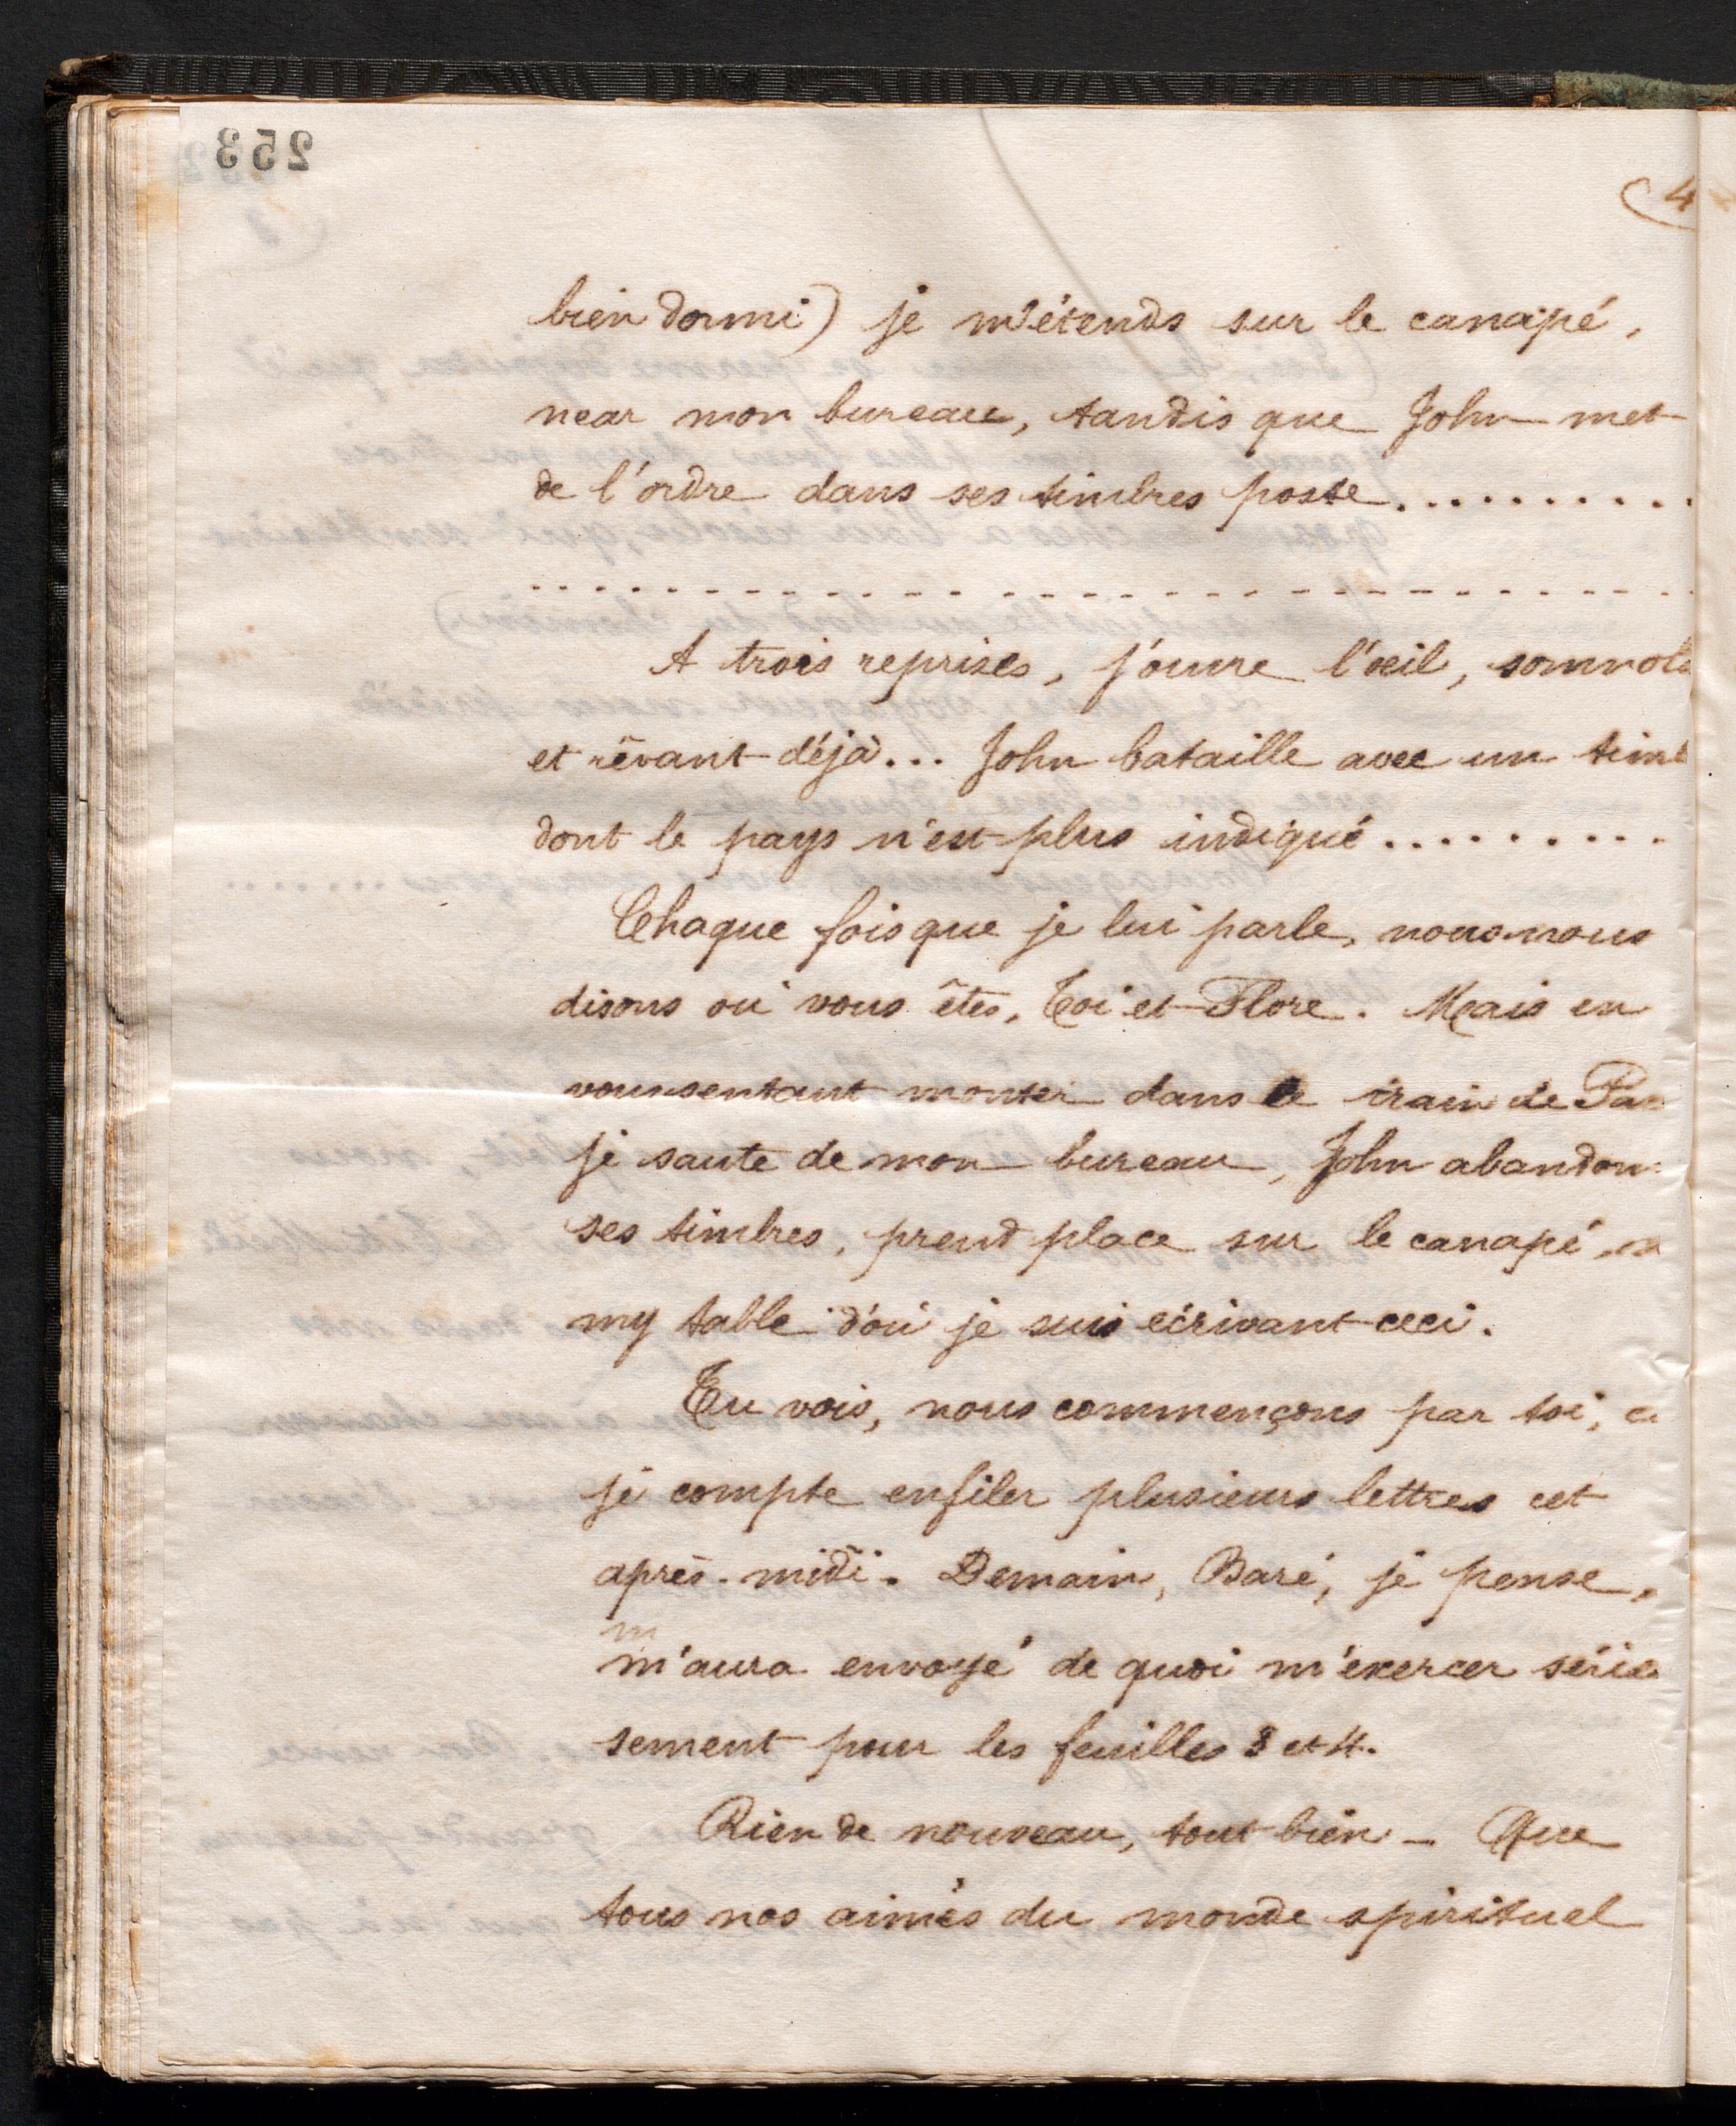 253
(4
bien dormi) je m'étends sur le canapé,
near mon bureau, tandis que John met
de l'ordre dans ses timbres poste..........
..............................
A trois reprises, j'ouvre l'œil, somnol
et rêvant déjà... John bataille avec un timb
dont le pays n'est plus indiqué.........
Chaque fois que je lui parle, nous nous
disons où vous êtes, Toi et Flore. Mais en
vous sentant monter dans le train de Par
je saute de mon bureau, John abandon
ses timbres, prend place sur le canapé,
my table d'où je suis écrivant ceci.
Tu vois, nous commençons par toi,
je compte enfiler plusieurs lettres cet
après-midi. Demain, Baré, je pense,
m
m'aura envoyé de quoi m'exercer sérieu
sement pour les feuilles 3 et 4.
Rien de nouveau, tout bien — Que
tous nos aimés du monde spirituel